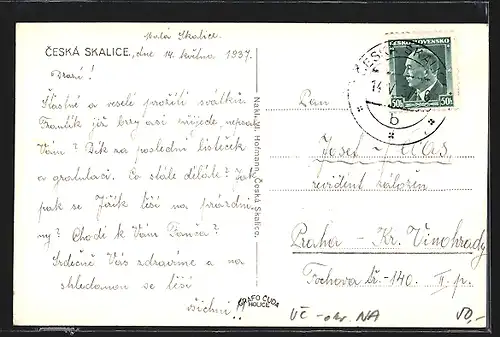 Malá Skalice.
ČESKÁ SKALICE, dne 14. května 1937.
Drazí!
Šťastné a veselé prožití svátků.
Frantík již brzy asi přijede, nepsal
Vám? Dík za poslední lísteček
a gratulaci. Co stále děláte? Jak
pak se Jařík těší na prázdni-
ny? Chodí k Vám Fanča?
Srdečně Vás zdravíme a na
shledanou se těší
všichni!!
Nakl. Vl. Hofmann, Česká Skalice.
GRAFO ČUDA
HOLICE
ČESKOSLOVENSKO
50h 50h
ČESKÁ SKALICE
14.V.
b
Pan
Josef
revident záložen
Praha - Kr. Vinohrady
Fochova tř. 140. II. p.
VČ - okr. NA
50,-